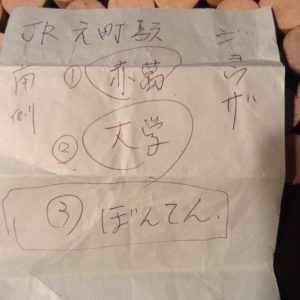 JR元町駅
ギョウザ
南側
① 赤萬
② 大学
③ ぼんてん.